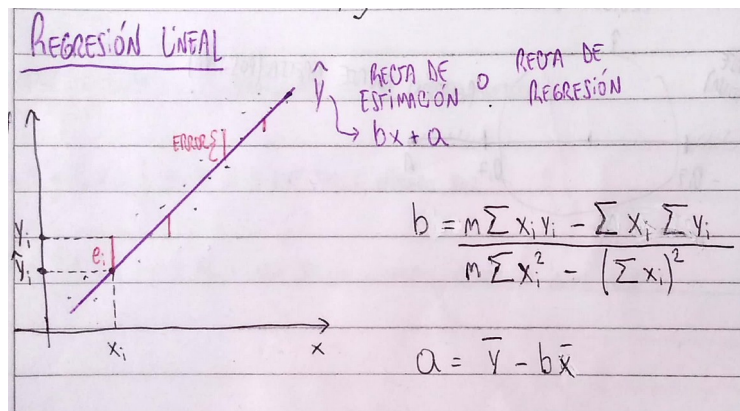 REGRESIÓN LINEAL
ŷ RECTA DE ESTIMACIÓN O RECTA DE REGRESIÓN
↳ bx + a
ERROR {
yᵢ
eᵢ
ŷᵢ
xᵢ
x
b = (n Σ xᵢyᵢ − Σ xᵢ Σ yᵢ) / (n Σ xᵢ² − (Σ xᵢ)²)
a = ȳ − bx̄